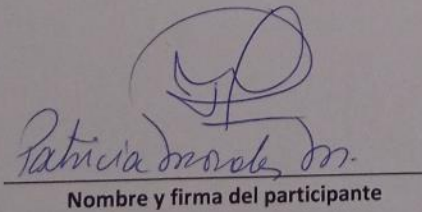 Patricia Morales M.
Nombre y firma del participante